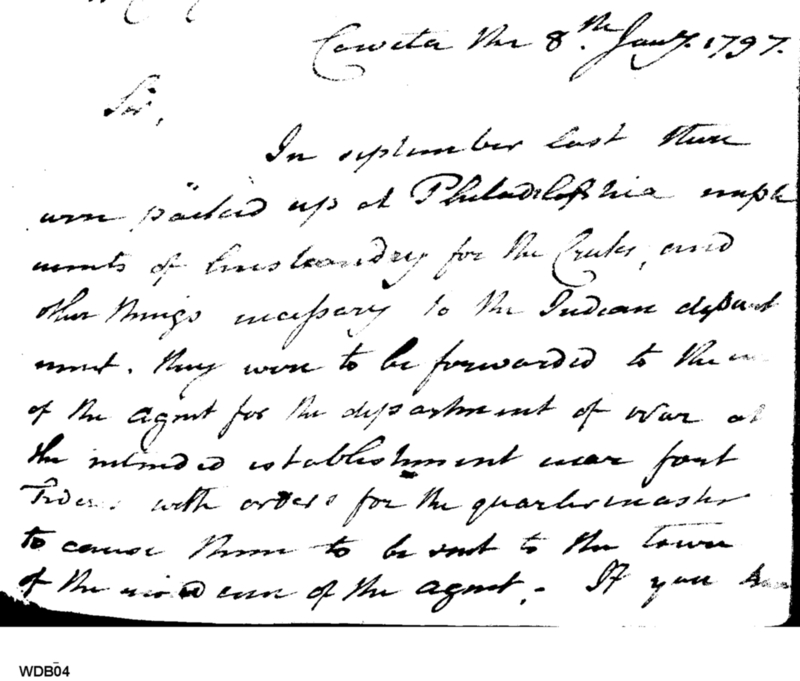 Coweta the 8th. Jany. 1797.
Sir,
In september last there
were packed up at Philadelphia imple
ments of husbandry for the Creeks, and
other things necessary to the Indian depart
ment. they were to be forwarded to the
of the agent for the department of war at
the intended establishment near fort
with orders for the quartermaster
to cause them to be sent to the town
of the residence of the agent. If you
WDB04